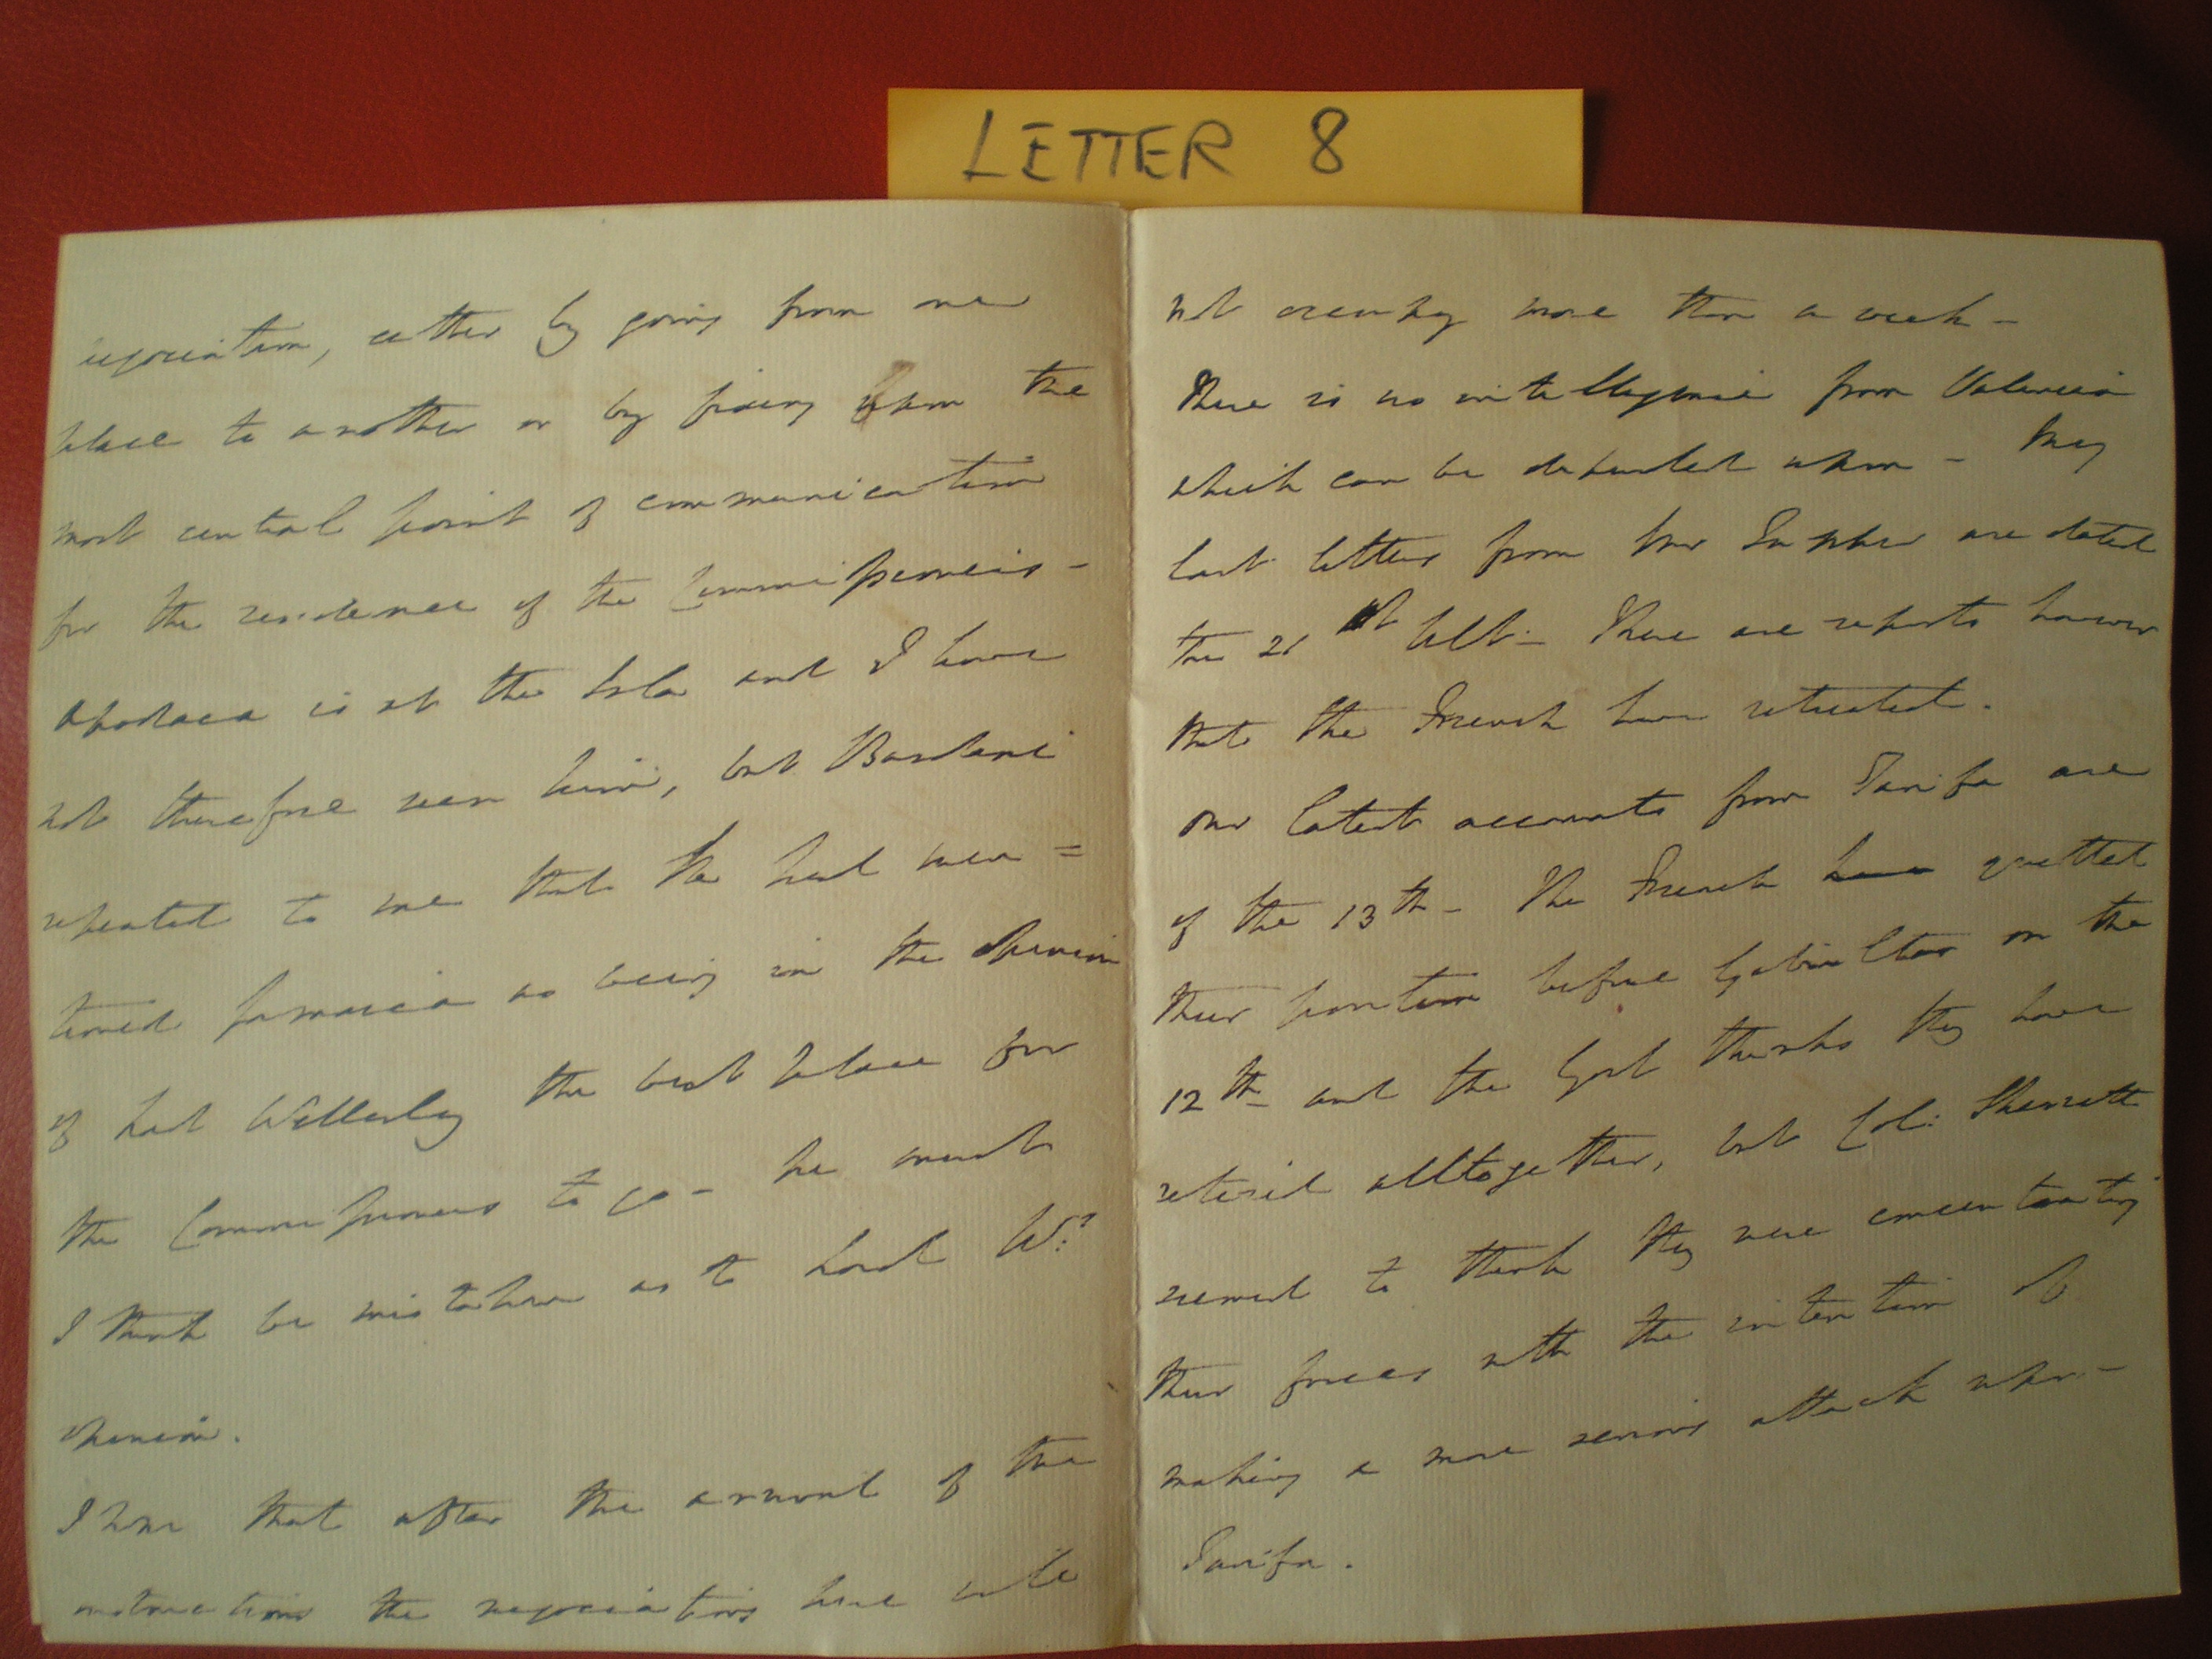 LETTER 8
negociation, either by going from one
place to another or by fixing upon the
most central point of communication
for the residence of the Commissioners -
Apodaca is at the Isla and I have
not therefore seen him, but Bardaxi
repeated to me that he had men =
tioned Jamaica as being in the opinion
of Lord Wellesley the best place for
the Commissioners to go - he must
I think be mistaken as to Lord W.s
opinion.
I hope that after the arrival of the
instructions the negociations here will
not occupy more than a week -
There is no intelligence from Valencia
which can be depended upon - My
last letters from Mr Tupper are dated
the 21st Ult. - There are reports however
that the French have retreated.
Our latest accounts from Tarifa are
of the 13th - The French have quitted
their position before Gibraltar on the
12th and the Govr thinks they have
retired alltogether, but Col: Skerrett
seemed to think they were concentrating
their forces with the intention of
making a more serious attack upon -
Tarifa.